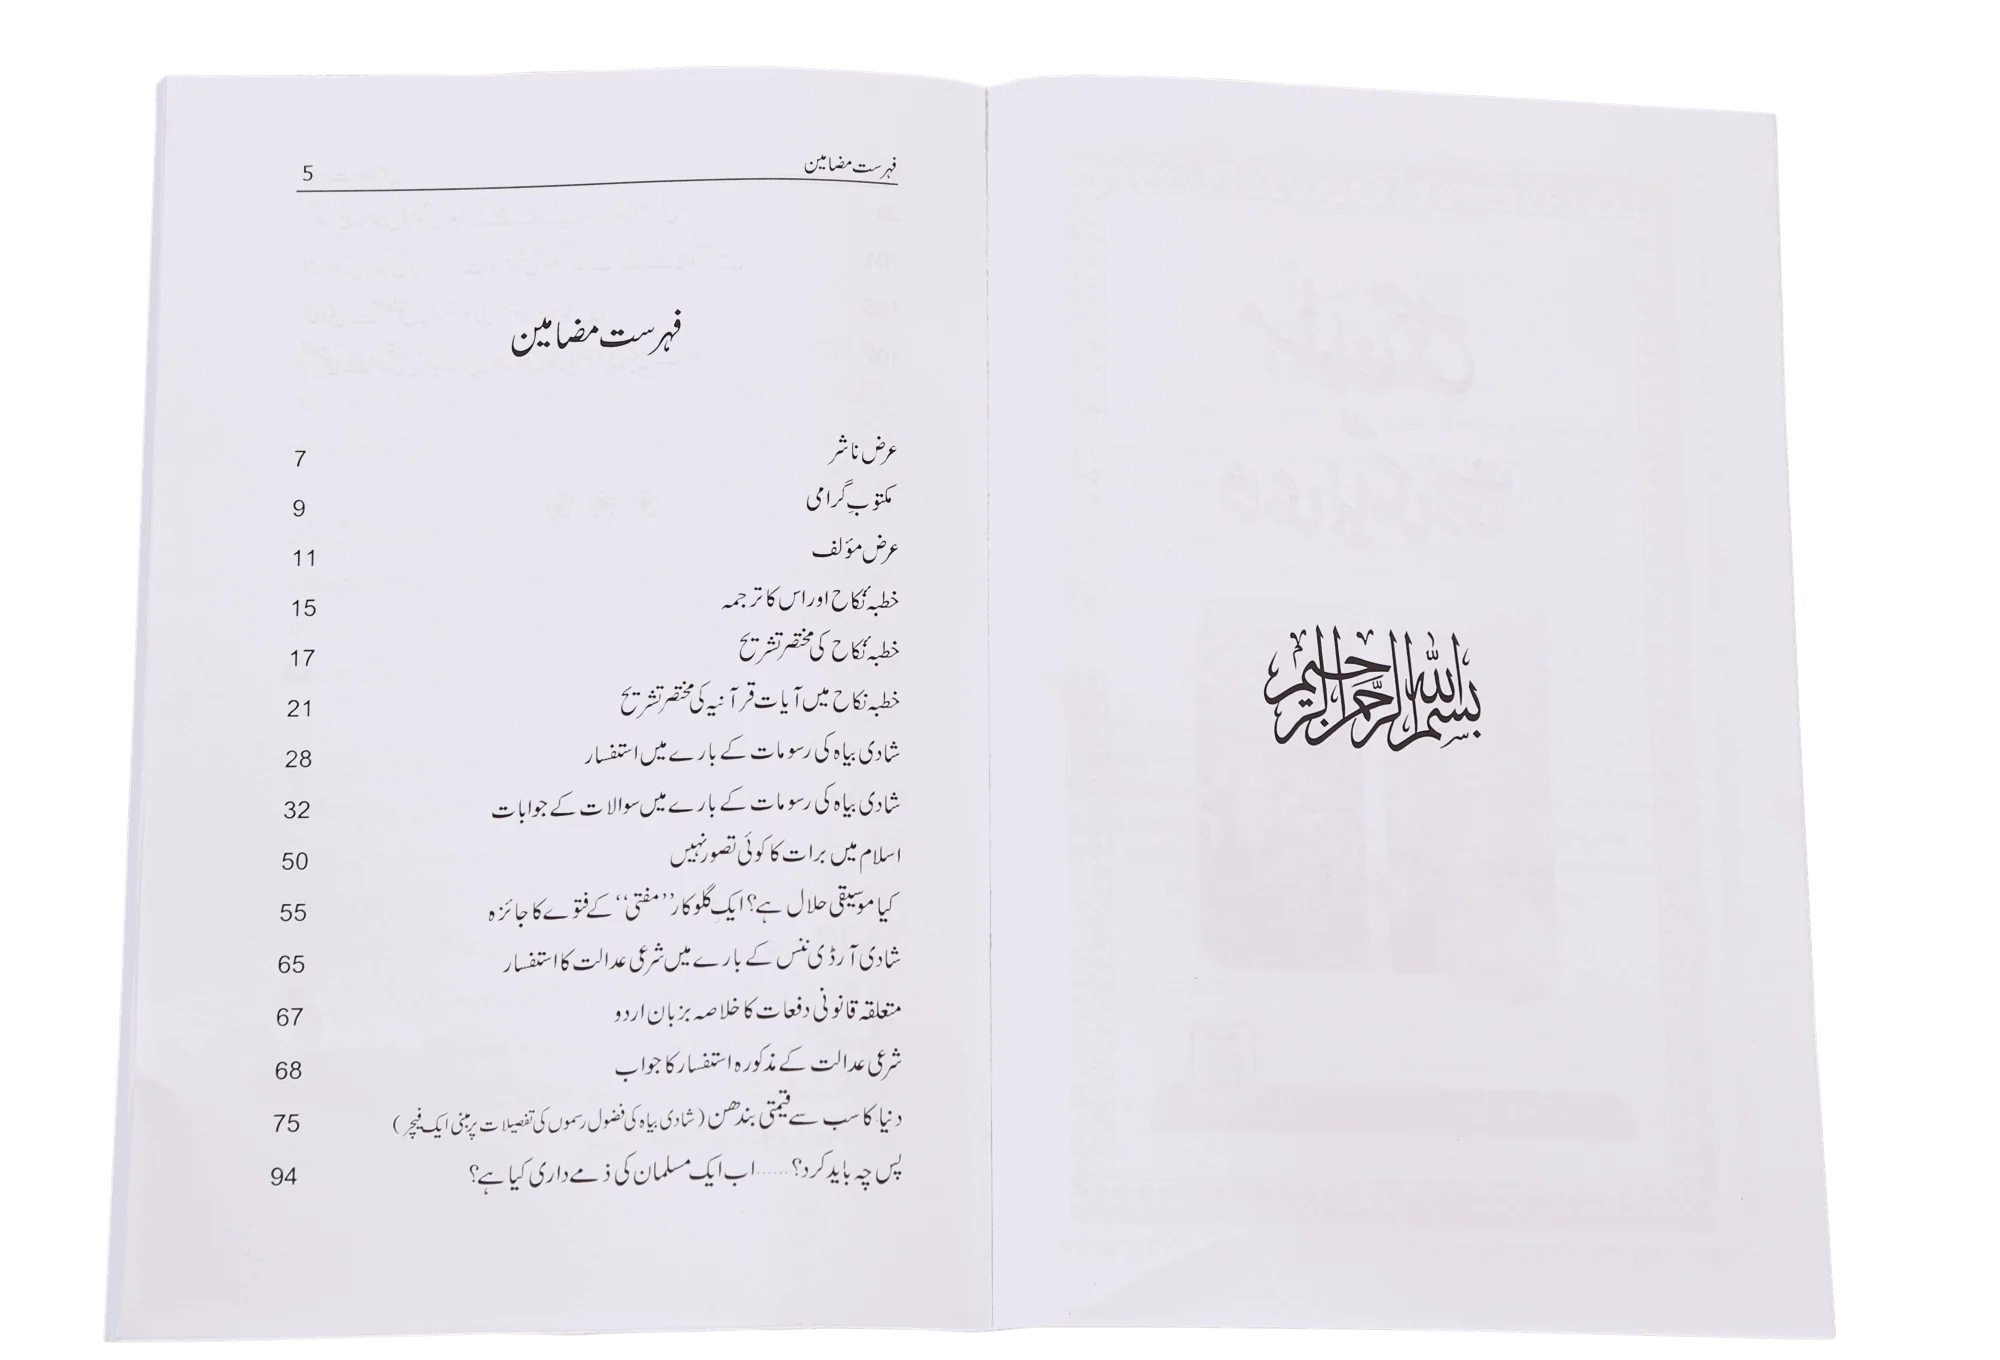 بسم اللہ الرحمن الرحیم
فہرست مضامین 5
فہرست مضامین
عرض ناشر 7
مکتوبِ گرامی 9
عرض مؤلف 11
خطبہ نکاح اور اس کا ترجمہ 15
خطبہ نکاح کی مختصر تشریح 17
خطبہ نکاح میں آیات قرآنیہ کی مختصر تشریح 21
شادی بیاہ کی رسومات کے بارے میں استفسار 28
شادی بیاہ کی رسومات کے بارے میں سوالات کے جوابات 32
اسلام میں برات کا کوئی تصور نہیں 50
کیا موسیقی حلال ہے؟ ایک گلوکار ’’مفتی‘‘ کے فتوے کا جائزہ 55
شادی آرڈی ننس کے بارے میں شرعی عدالت کا استفسار 65
متعلقہ قانونی دفعات کا خلاصہ بزبان اردو 67
شرعی عدالت کے مذکورہ استفسار کا جواب 68
دنیا کا سب سے قیمتی بندھن (شادی بیاہ کی فضول رسموں کی تفصیلات پر مبنی ایک فیچر) 75
پس چہ باید کرد؟ ...... اب ایک مسلمان کی ذمے داری کیا ہے؟ 94